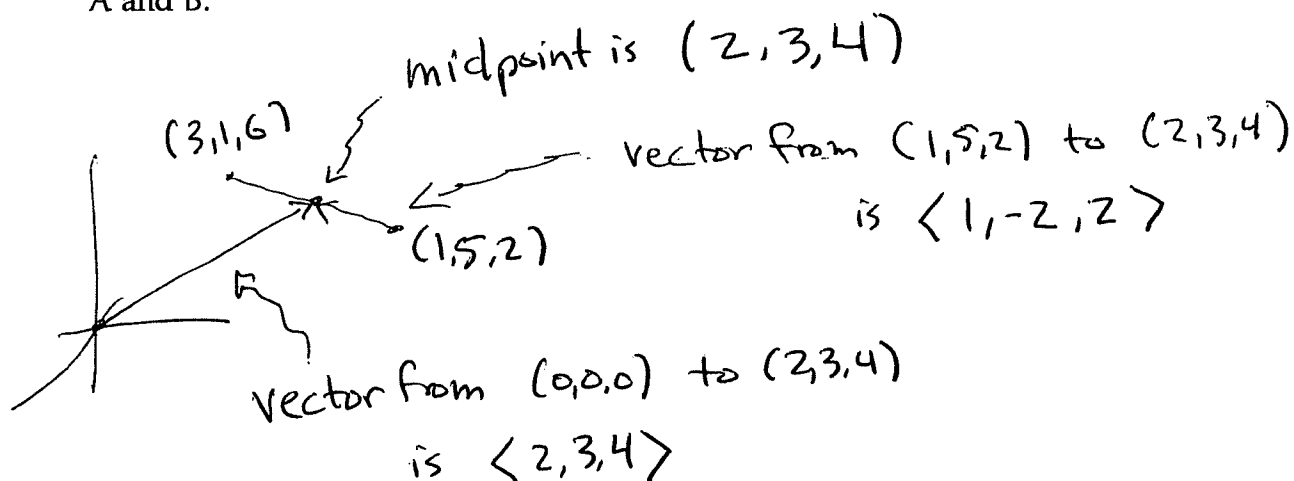 A and B.
midpoint is (2,3,4)
(3,1,6)
vector from (1,5,2) to (2,3,4)
is <1,-2,2>
(1,5,2)
vector from (0,0,0) to (2,3,4)
is <2,3,4>